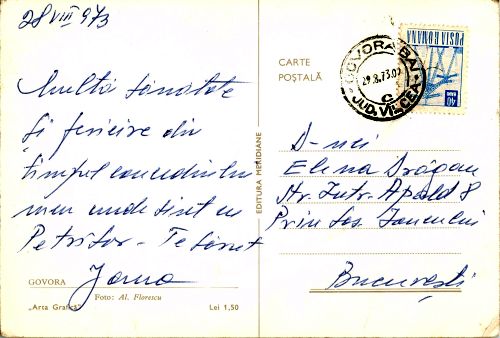 28 VIII 973
Multă sănătate
și fericire din
timpul concediului
meu unde sînt cu
GOVORA
Foto: Al. Florescu
„Arta Grafică”
Lei 1,50
EDITURA MERIDIANE
CARTE
POȘTALĂ
GOVORA BAI
JUD. VÎLCEA
POSTA ROMANA
40
BANI
D-nei
Elena Drăgan
Str. Intr. Apold 8
Prin Șos. Iancului
București